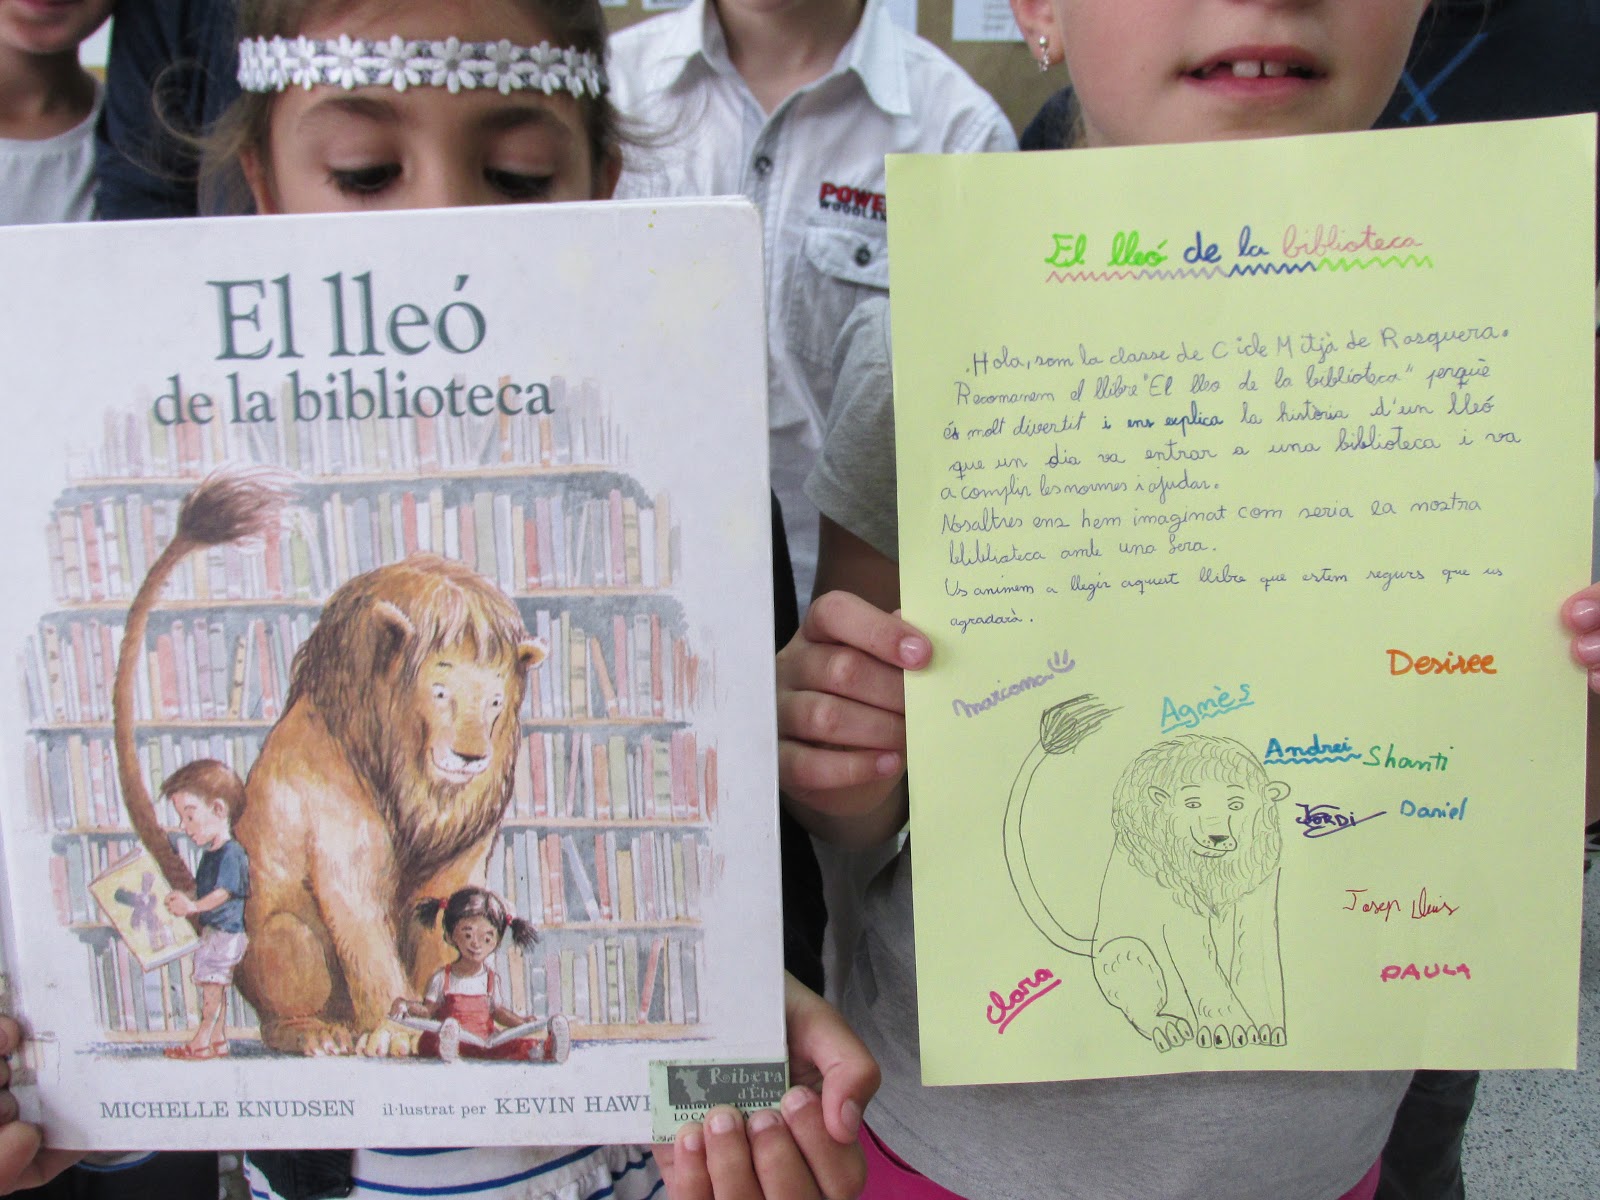 El lleó
de la biblioteca
MICHELLE KNUDSEN il·lustrat per KEVIN
Ribera
d'Ebre
POWE
WOODLAN
El lleó de la biblioteca
.Hola, som la classe de Cicle Mitjà de Rasquera.
Recomanem el llibre "El lleo de la biblioteca" perquè
és molt divertit i ens explica la història d'un lleó
que un dia va entrar a una biblioteca i va
acomplir les normes i ajudar.
Nosaltres ens hem imaginat com seria la nostra
blibliateca amb una fera.
Us animem a llegir aquest llibre que estem segurs que us
agradarà.
Desiree
Agnès
Andrei Shanti
JORDI Daniel
Josep Lluis
clara
PAULA